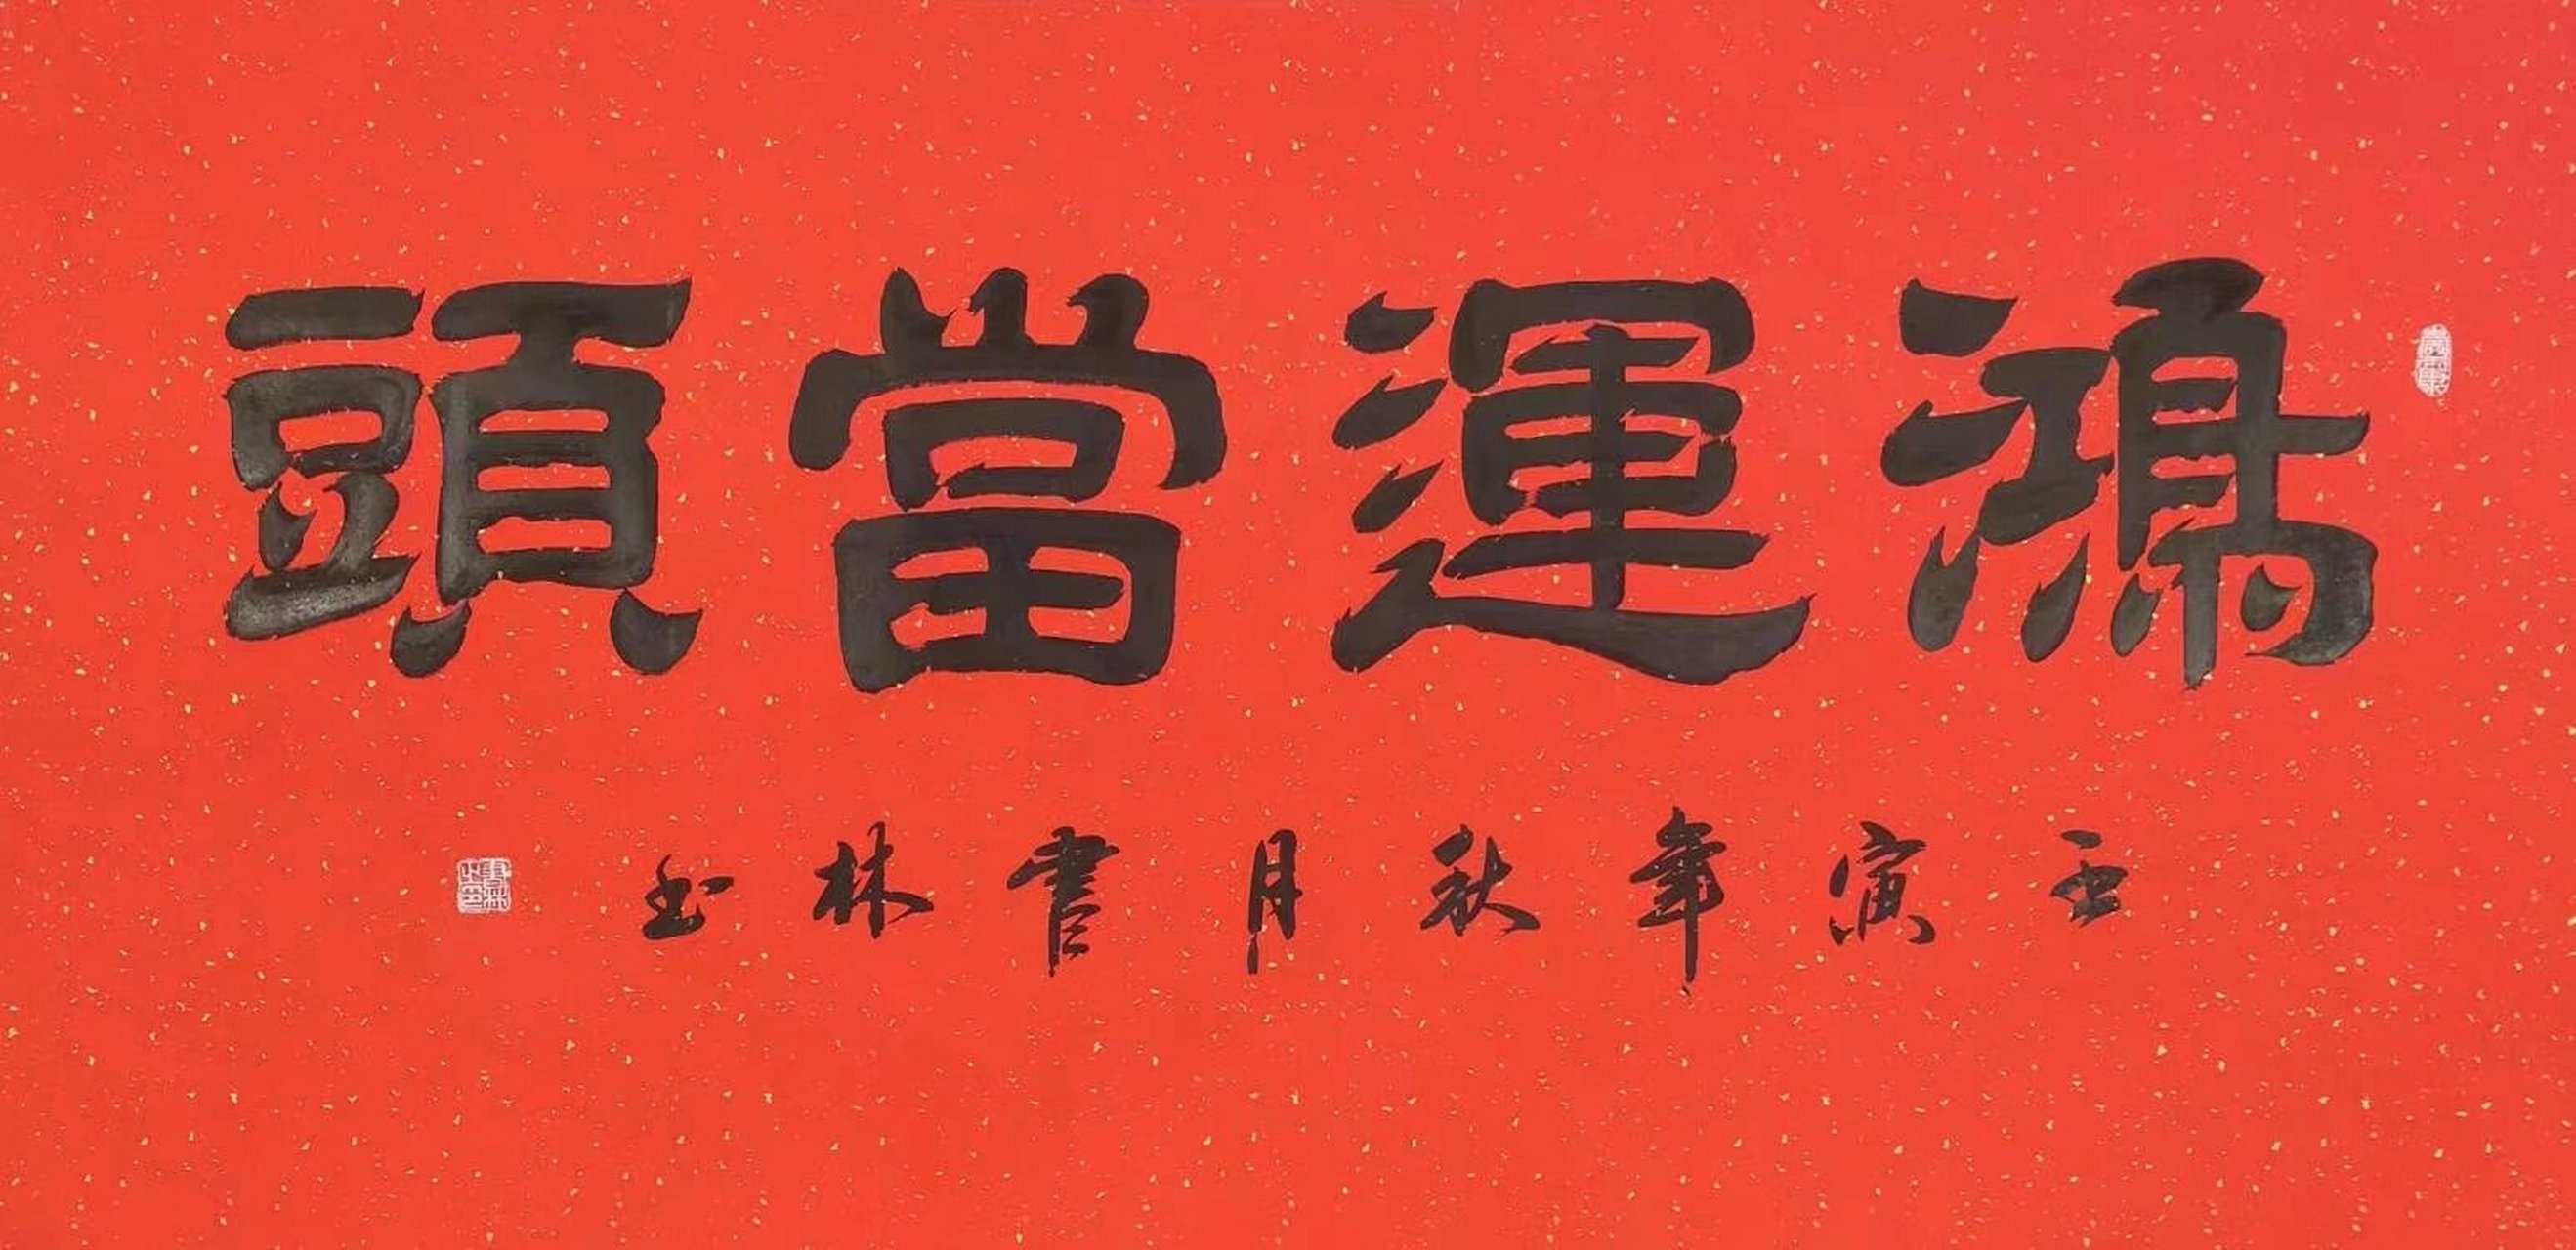 鴻運當頭
壬寅年秋月書林书